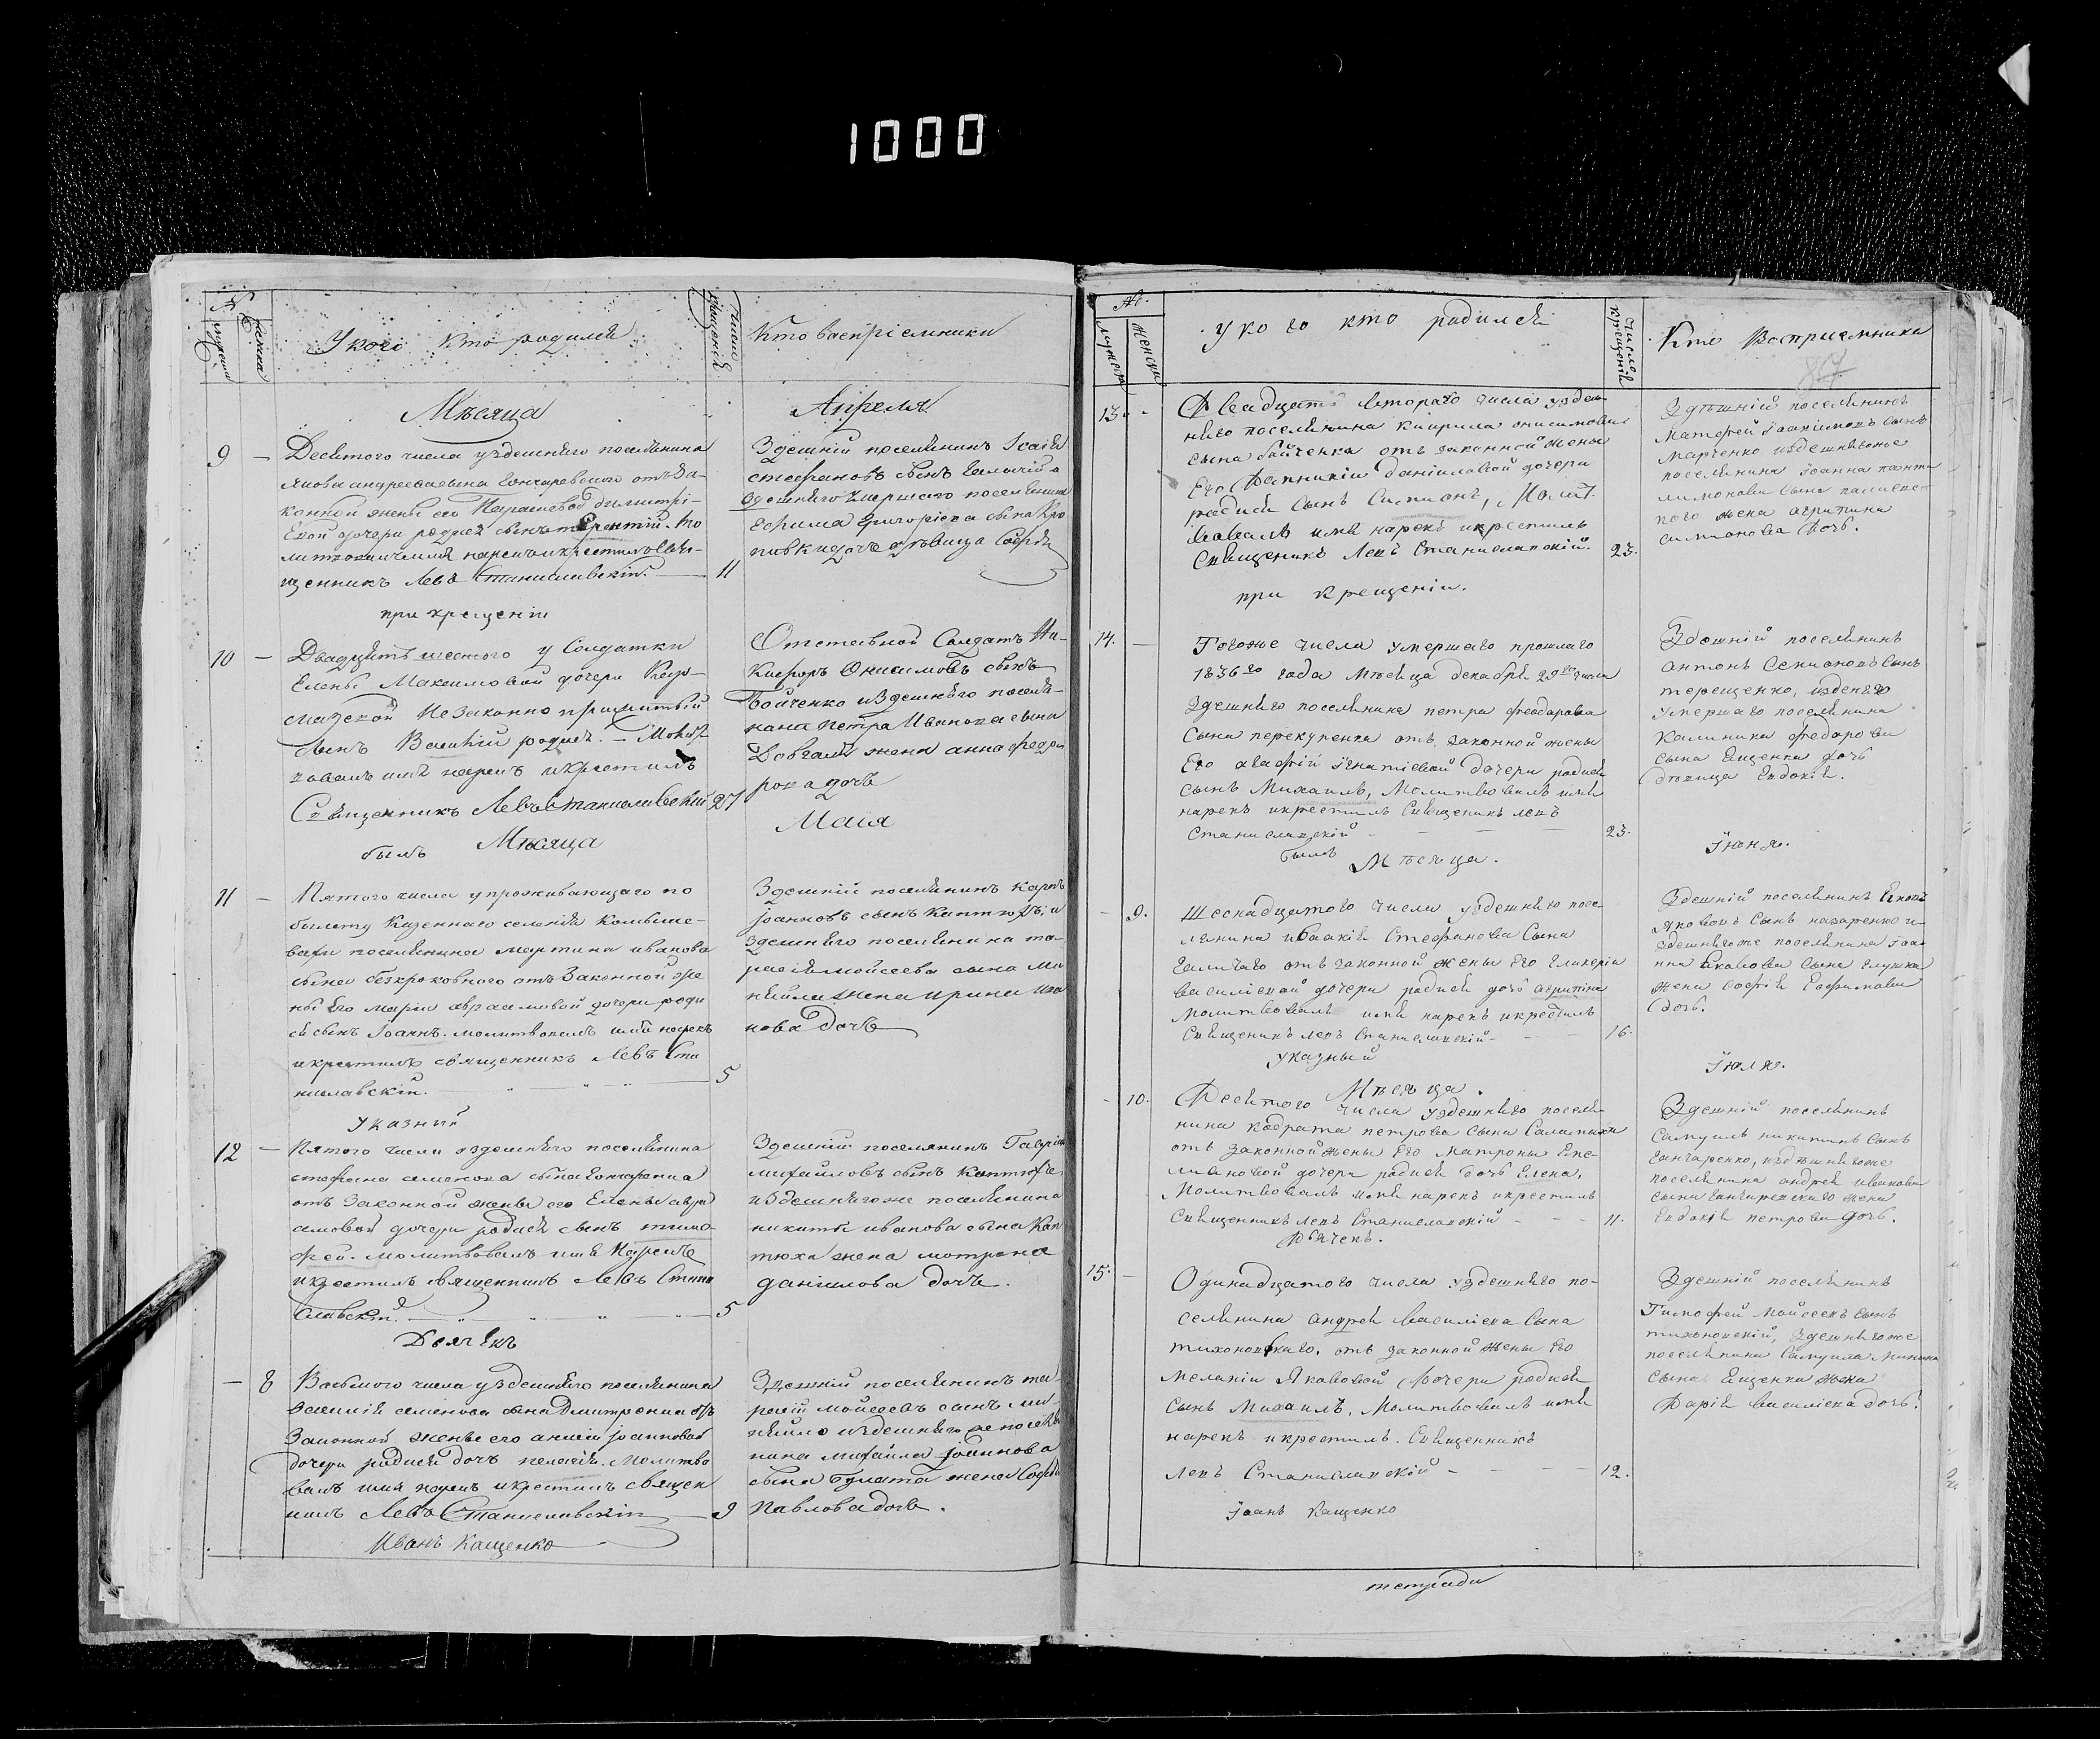 1000
№
мужска
женска
У кого кто родился
Число крещенія
Кто воспріемники
Мѣсяца
Апреля
9 —
Десятого числа уздешняго поселянина
якова андреева сына Гончаревского отъ за-
конной жены его Парасковіи димитрі-
евой дочери родися сынъ терентій. Мо
литвовалъ имя нарекъ и крестилъ Свя-
щенникъ Левъ Станиславскій. — 11
Здешній поселянинъ Ісаія
стефановъ сынъ
здешняго умершаго поселянина
ефима Григоріева сына
дочь девица Софія
при крещеніи
10 —
Двадцять шестого у Солдатки
Елены Максимовой дочери
незаконно прижитый
сынъ Василій родися. — Молит-
вовалъ имя нарекъ и крестилъ
Священникъ Левъ Станиславскій 27
Отставной Солдатъ Ни-
кифоръ Онисимовъ сынъ
Бойченко и здешняго поселя-
нина петра Иванова сына
Довгаля жена анна федо
рова дочь
былъ
Мѣсяца
Маія
11 —
Пятого числа у проживающаго по
билету Казеннаго селенія Комыше-
вахи поселянина мартина иванова
сына безкровного отъ Законной же
ны его маріи авраамовой дочери роди
ся сынъ Іоаннъ. молитвовалъ имя нарекъ
и крестилъ священникъ Левъ Ста
ниславскій. — 5
Здешній поселянинъ карпъ
іоанновъ сынъ Каптюхъ, и
здешняго поселянина та-
расія мойсеева сына Ми
хайла жена ирина ива
нова Дочь
Указный
12 —
Пятого числа здешняго поселянина
стефана семенова сына Гончаренка
отъ Законной жены его Елены авра
амовой дочери родися сынъ тимо-
фей. молитвовалъ имя Нарекъ
и крестилъ священникъ Левъ Стани
славскій. — 5
Здешній поселянинъ Гавріи
михайловъ сынъ Каптюхъ
и здешнягоже поселянина
никиты иванова сына Кап
тюха жена мотрона
даніилова дочь.
Дьячекъ
— 8
Восьмого числа уздешняго поселянина
василія семенова сына Дмитренка отъ
Законной жены его анны іоанновой
дочери родися дочь пелагія. Молитво
валъ имя нарекъ и крестилъ священ
никъ Левъ Станиславскій — 9
Здешній поселянинъ та-
расій мойсеевъ сынъ ми-
хайло и здешнягоже поселя
нина михайла іоаннова
сына Булата жена Софія
Павлова дочь.
Иванъ Кащенко
№.
мужска
женска
у кого кто родился
Число крещенія
Кто Восприемники
87
13. -
Двадцать второго числа уздеш-
няго поселянина Кирила онисимова
сына бойченка отъ законной жены
Его Даніиловой дочери
родися Сынъ Симионъ, Молит
вовалъ имя нарекъ икрестилъ
Священникъ Левъ Станиславскій. 23.
Здѣшній поселянинъ
Матфей Іоакимовъ Сынъ
Марченко издешнягоже
поселянина Іоанна панте
лимонова Сына
жена агрипина
симонова Дочь.
при Крещеніи.
14. —
Тогоже числа умершаго прошлаго
1836го года Мѣсяца декабря 29го числа
Здешняго поселянина петра феодорова
Сына перекупенка отъ законной жены
Его агафіи Ігнатіевой дочери родися
Сынъ Михаилъ, Молитвовалъ имя
нарекъ икрестилъ Священникъ левъ
Станиславскій — 23.
Здешній поселянинъ
антонъ Семионовъ Сынъ
терещенко, издешняго
умершаго поселянина
Калиника федорова
сына Ященка дочь
дѣвица Евдокія.
былъ
Мѣсяца.
Іюня.
- 9.
Шеснадцатого числа уздешняго посе-
лянина ісаакія Стефанова Сына
отъ законной жены его Гликеріи
василіевой дочери родися дочь агрипина
Молитвовалъ имя нарекъ икрестилъ
Священникъ левъ Станиславскій — 16.
Здешній поселянинъ
Якововъ Сынъ назаренко и-
здешнягоже поселянина Іоа-
нна Яковова Сына глушка
жена Софія Ефимова
Дочь.
Указный
Мѣсяца.
Іюля.
- 10.
Десятого числа уздешняго поселя-
нина Кодрата петрова Сына
отъ законной жены Его Матроны Еме-
лиановой дочери родися дочь Елена,
Молитвовалъ имя нарекъ икрестилъ
Священникъ левъ Станиславскій — 11.
Здешній поселянинъ
Самуилъ никитинъ Сынъ
Гончаренко, издѣшнягоже
поселянина андрея иванова
сына Гончаревскаго жена
Евдокія петрова Дочь.
Дьячекъ.
15. —
Одинадцатого числа уздешняго по-
селянина андрея василіева Сына
тихоновскаго, отъ законной жены Его
Меланіи Яковой дочери родися
Сынъ Михаилъ, Молитвовалъ имя
нарекъ икрестилъ. Священникъ
левъ Станиславскій — 12.
Здешній поселянинъ
Тимофей Мойсеевъ Сынъ
тихоновскій, здешнягоже
поселянина Самуила
сына Ященка жена
Дарія василіева дочь.
Іоанъ Кащенко
тетради